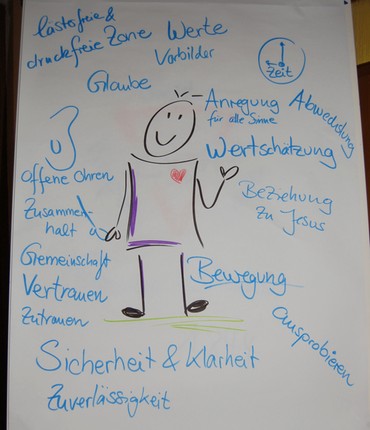 lästerfreie &
druckfreie Zone
Werte
Vorbilder
Zeit
Glaube
Anregung
für alle Sinne
Abwechslung
Wertschätzung
Offene Ohren
Beziehung
zu Jesus
Zusammen-
halt
Gemeinschaft
Vertrauen
Zutrauen
Bewegung
ausprobieren
Sicherheit & Klarheit
Zuverlässigkeit